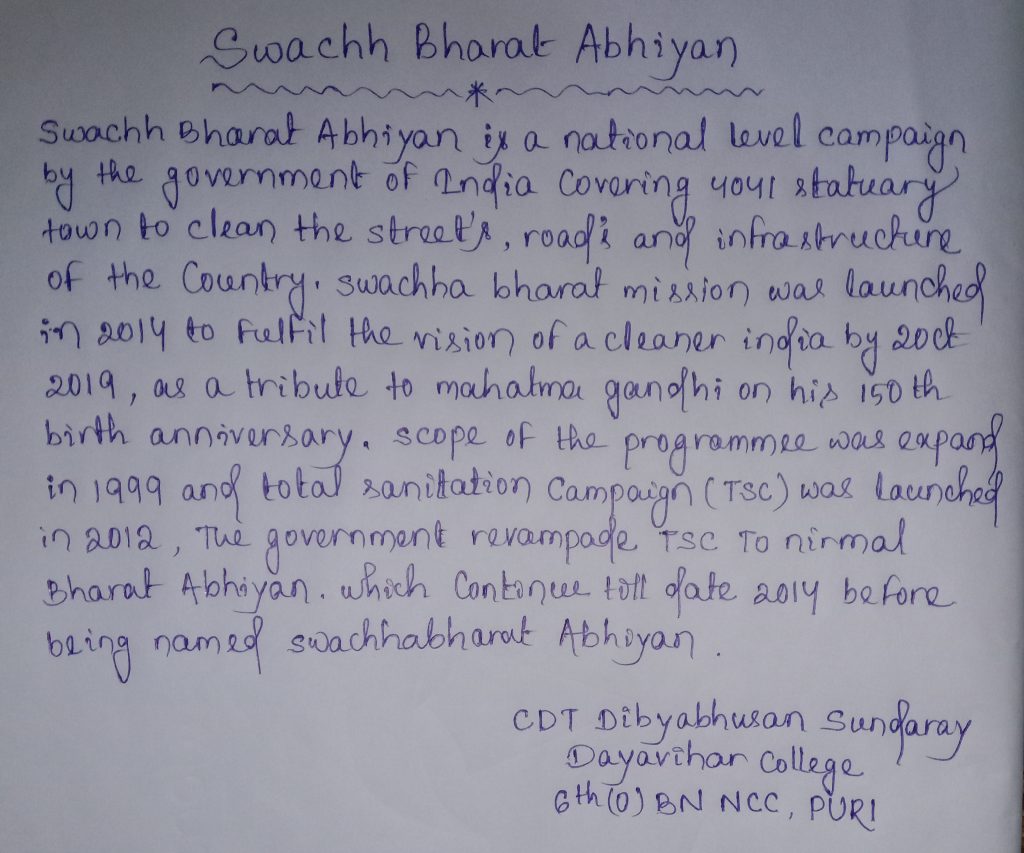 Swachh Bharat Abhiyan
Swachh Bharat Abhiyan is a national level campaign
by the government of India Covering 4041 statuary
town to clean the street's, road's and infrastructure
of the Country. swachha bharat mission was launched
in 2014 to fulfil the vision of a cleaner india by 2oct
2019, as a tribute to mahatma gandhi on his 150th
birth anniversary. scope of the programmee was expand
in 1999 and total sanitation Campaign (TSC) was launched
in 2012, The government revampade TSC To nirmal
Bharat Abhiyan. which Continue till date 2014 before
being named swachhabharat Abhiyan.
CDT Dibyabhusan Sundaray
Dayavihar College
6th (O) BN NCC, PURI